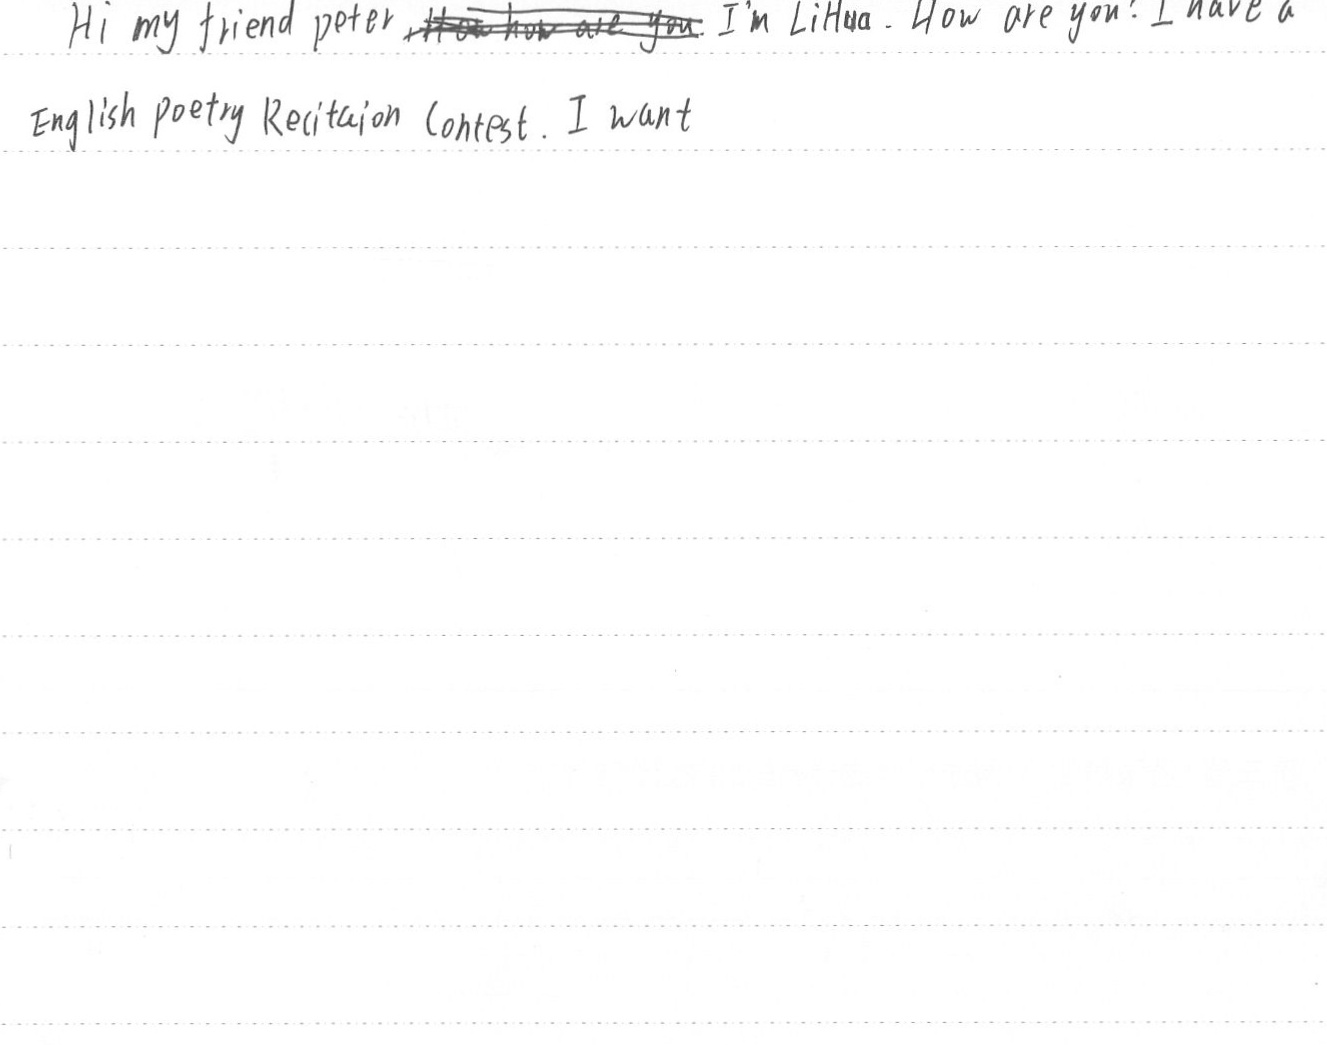 Hi my friend peter, I'm LiHua. How are you? I have a
English poetry Recitaion Contest. I want